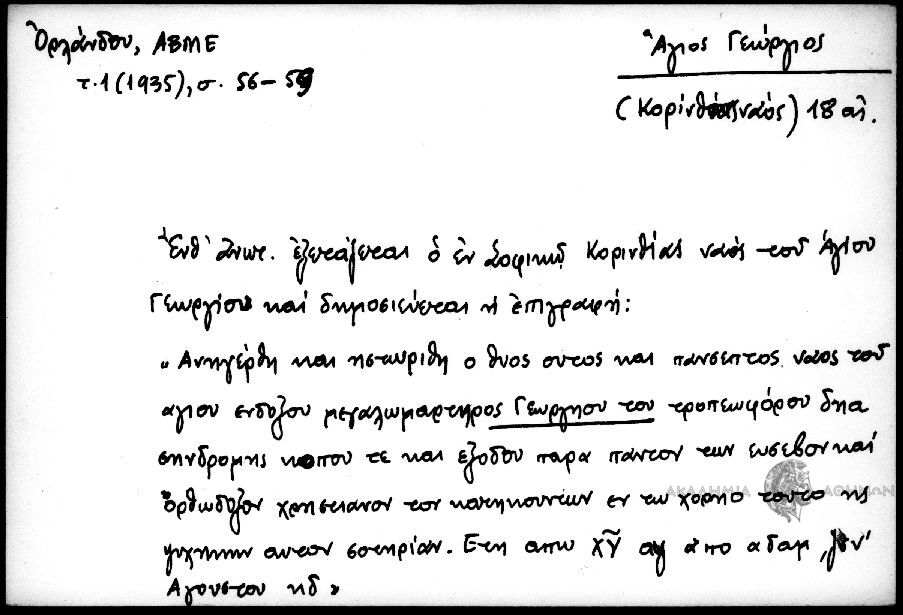 Ὀρλάνδου, ΑΒΜΕ
τ.1(1935), σ. 56-59
Ἅγιος Γεώργιος
(Κορίνθου ναός) 18 αἰ.
Ἔνθ' ἀνωτ. ἐξετάζεται ὁ ἐν Σοφικῷ Κορινθίας ναός τοῦ Ἁγίου
Γεωργίου καί δημοσιεύεται ἡ ἐπιγραφή:
"Ανηγέρθη και ηστωριθη ο θυος ουτος και πανσεπτος ναος τοῦ
αγιου ενδοξου μεγαλωμαρτηρος Γεωργηου του τροπεωφόρου δηα
σηνδρομης κοπου τε και εξοδου παρα πάντον των ευσεβον καί
ὀρθωδοξον χρησειανον τον κατηκουντων εν τω χορηο τουτο ης
ψηχηκην αυτον σοτηρίαν. Ετη απω Χῦ αψ ἀπο αδαμ
Αγουστου ηδ"
ΑΚΑΔΗΜΙΑ ΑΘΗΝΩΝ